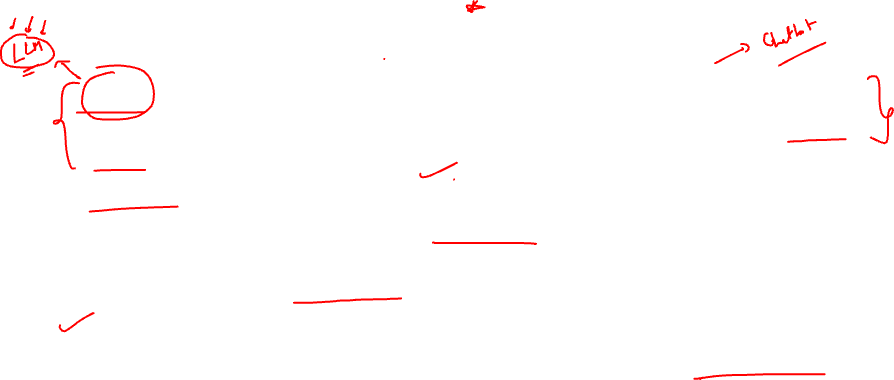 LLM
Chatbot